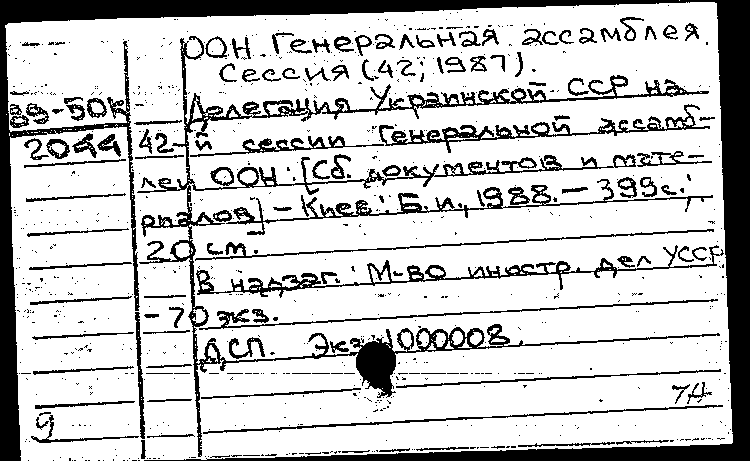 ООН. Генеральная ассамблея.
Сессия (42; 1987).
89-50к
Делегация Украинской ССР на
2044 42-й сессии Генеральной ассамб-
леи ООН: [Сб. документов и мате-
риалов] - Киев: Б.и., 1988. - 399с.;
20 см.
В надзаг.: М-во иностр. дел УССР
-70 экз.
ДСП. Экз. 1000008.
9